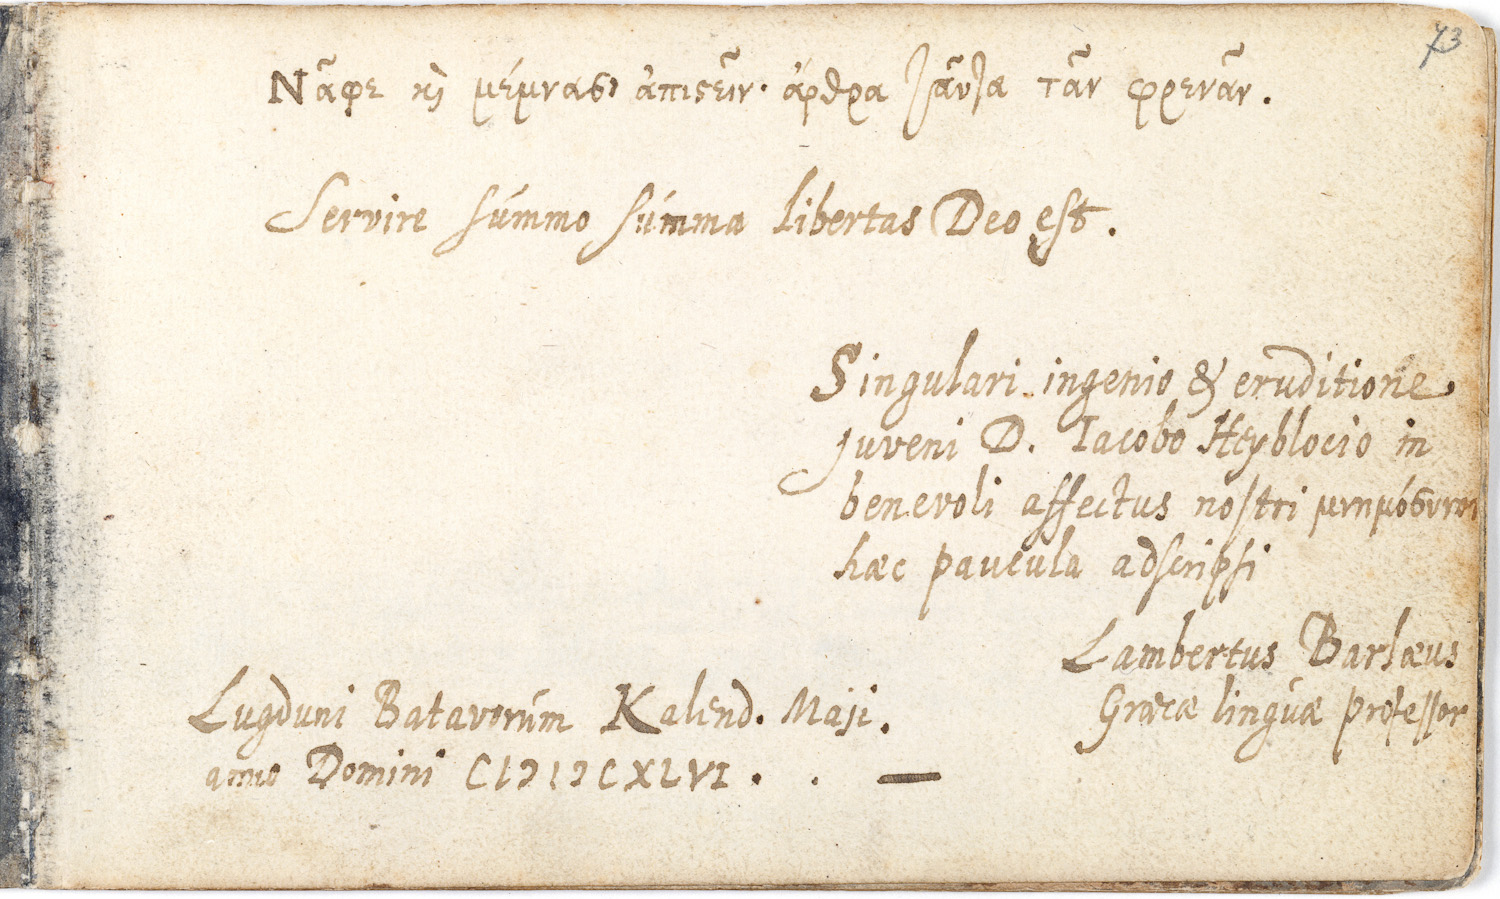 73
Νᾶφε καὶ μέμνασ' ἀπιστεῖν· ἄρθρα ταῦτα τᾶν φρενᾶν.
Servire súmmo súmma libertas Deo est.
Singulari ingenio & eruditione
juveni D. Iacobo Heyblocio in
benevoli affectus nostri μνημόσυνον
hæc paucula adscripsi
Lambertus Barlæus
Græcæ linguæ professor
Lugduni Batavorúm Kalend. Maji.
anno Domini CIƆIƆCXLVI.